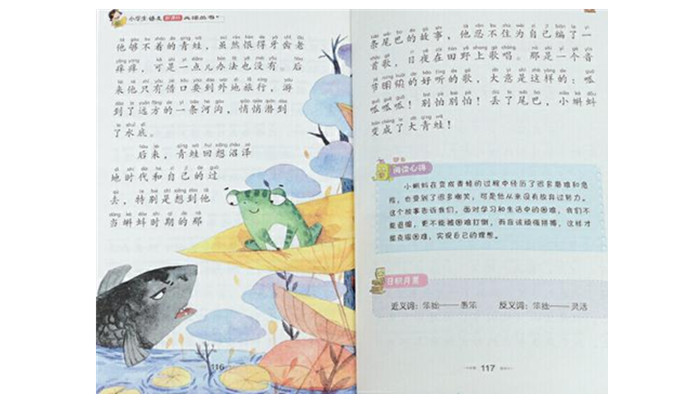 小学生语文
他够不着的青蛙，虽然恨得牙齿老
痒痒，可是一点儿办法也没有。后
来他只有借口要到外地旅行，游
到了远方的一条河沟，悄悄潜到
了水底。
后来，青蛙回想沼泽
地时代和自己的过
去，特别是想到他
当蝌蚪时期的那
116
条尾巴的故事，他忍不住为自己编了一
首歌，日夜在田野上歌唱。那是一个音
节烦琐的好听的歌，大意是这样的：呱
呱呱！别怕别怕！丢了尾巴，小蝌蚪
变成了大青蛙！
阅读心得
小蝌蚪在变成青蛙的过程中经历了很多磨难和危
险，也受到了很多嘲笑，可是他从来没有放弃过努力。
这个故事告诉我们，面对学习和生活中的困难，我们不
能退缩，更不能被困难打倒，而应该顽强拼搏，这样才
能克服困难，实现自己的理想。
日积月累
近义词：笨拙——愚笨 反义词：笨拙——灵活
117